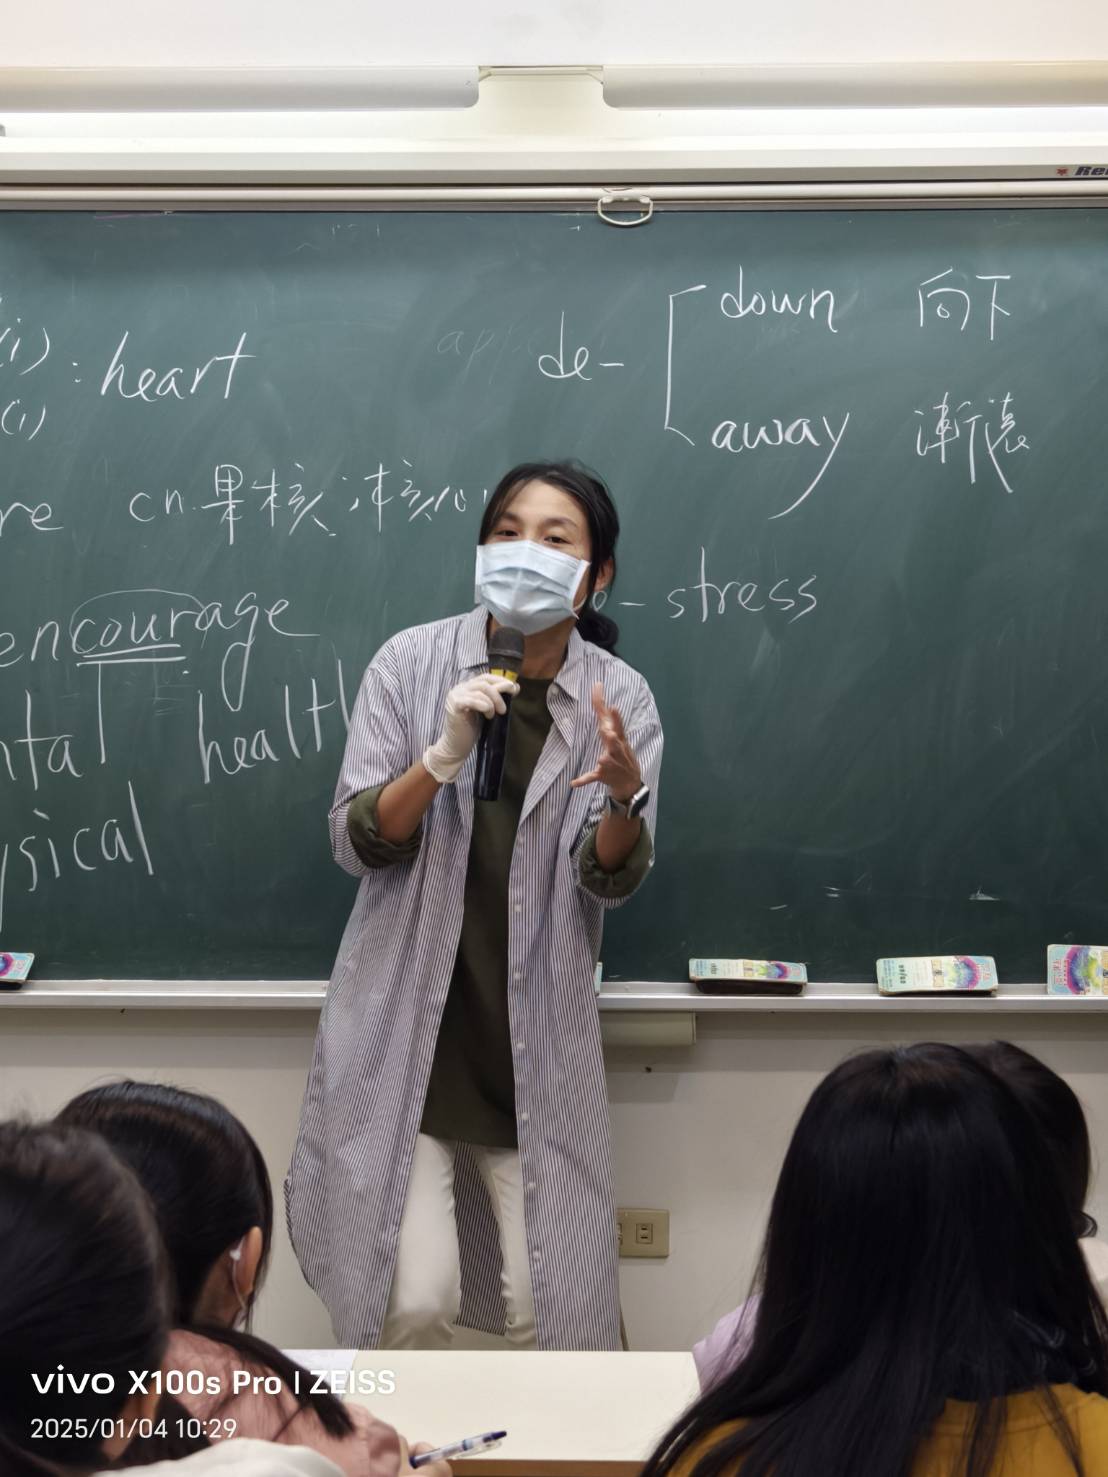 (i)
: heart
(i)
re cn.果核
encourage
ntal health
ysical
de-
down 向下
away 漸遠
-stress
Re
vivo X100s Pro | ZEISS
2025/01/04 10:29